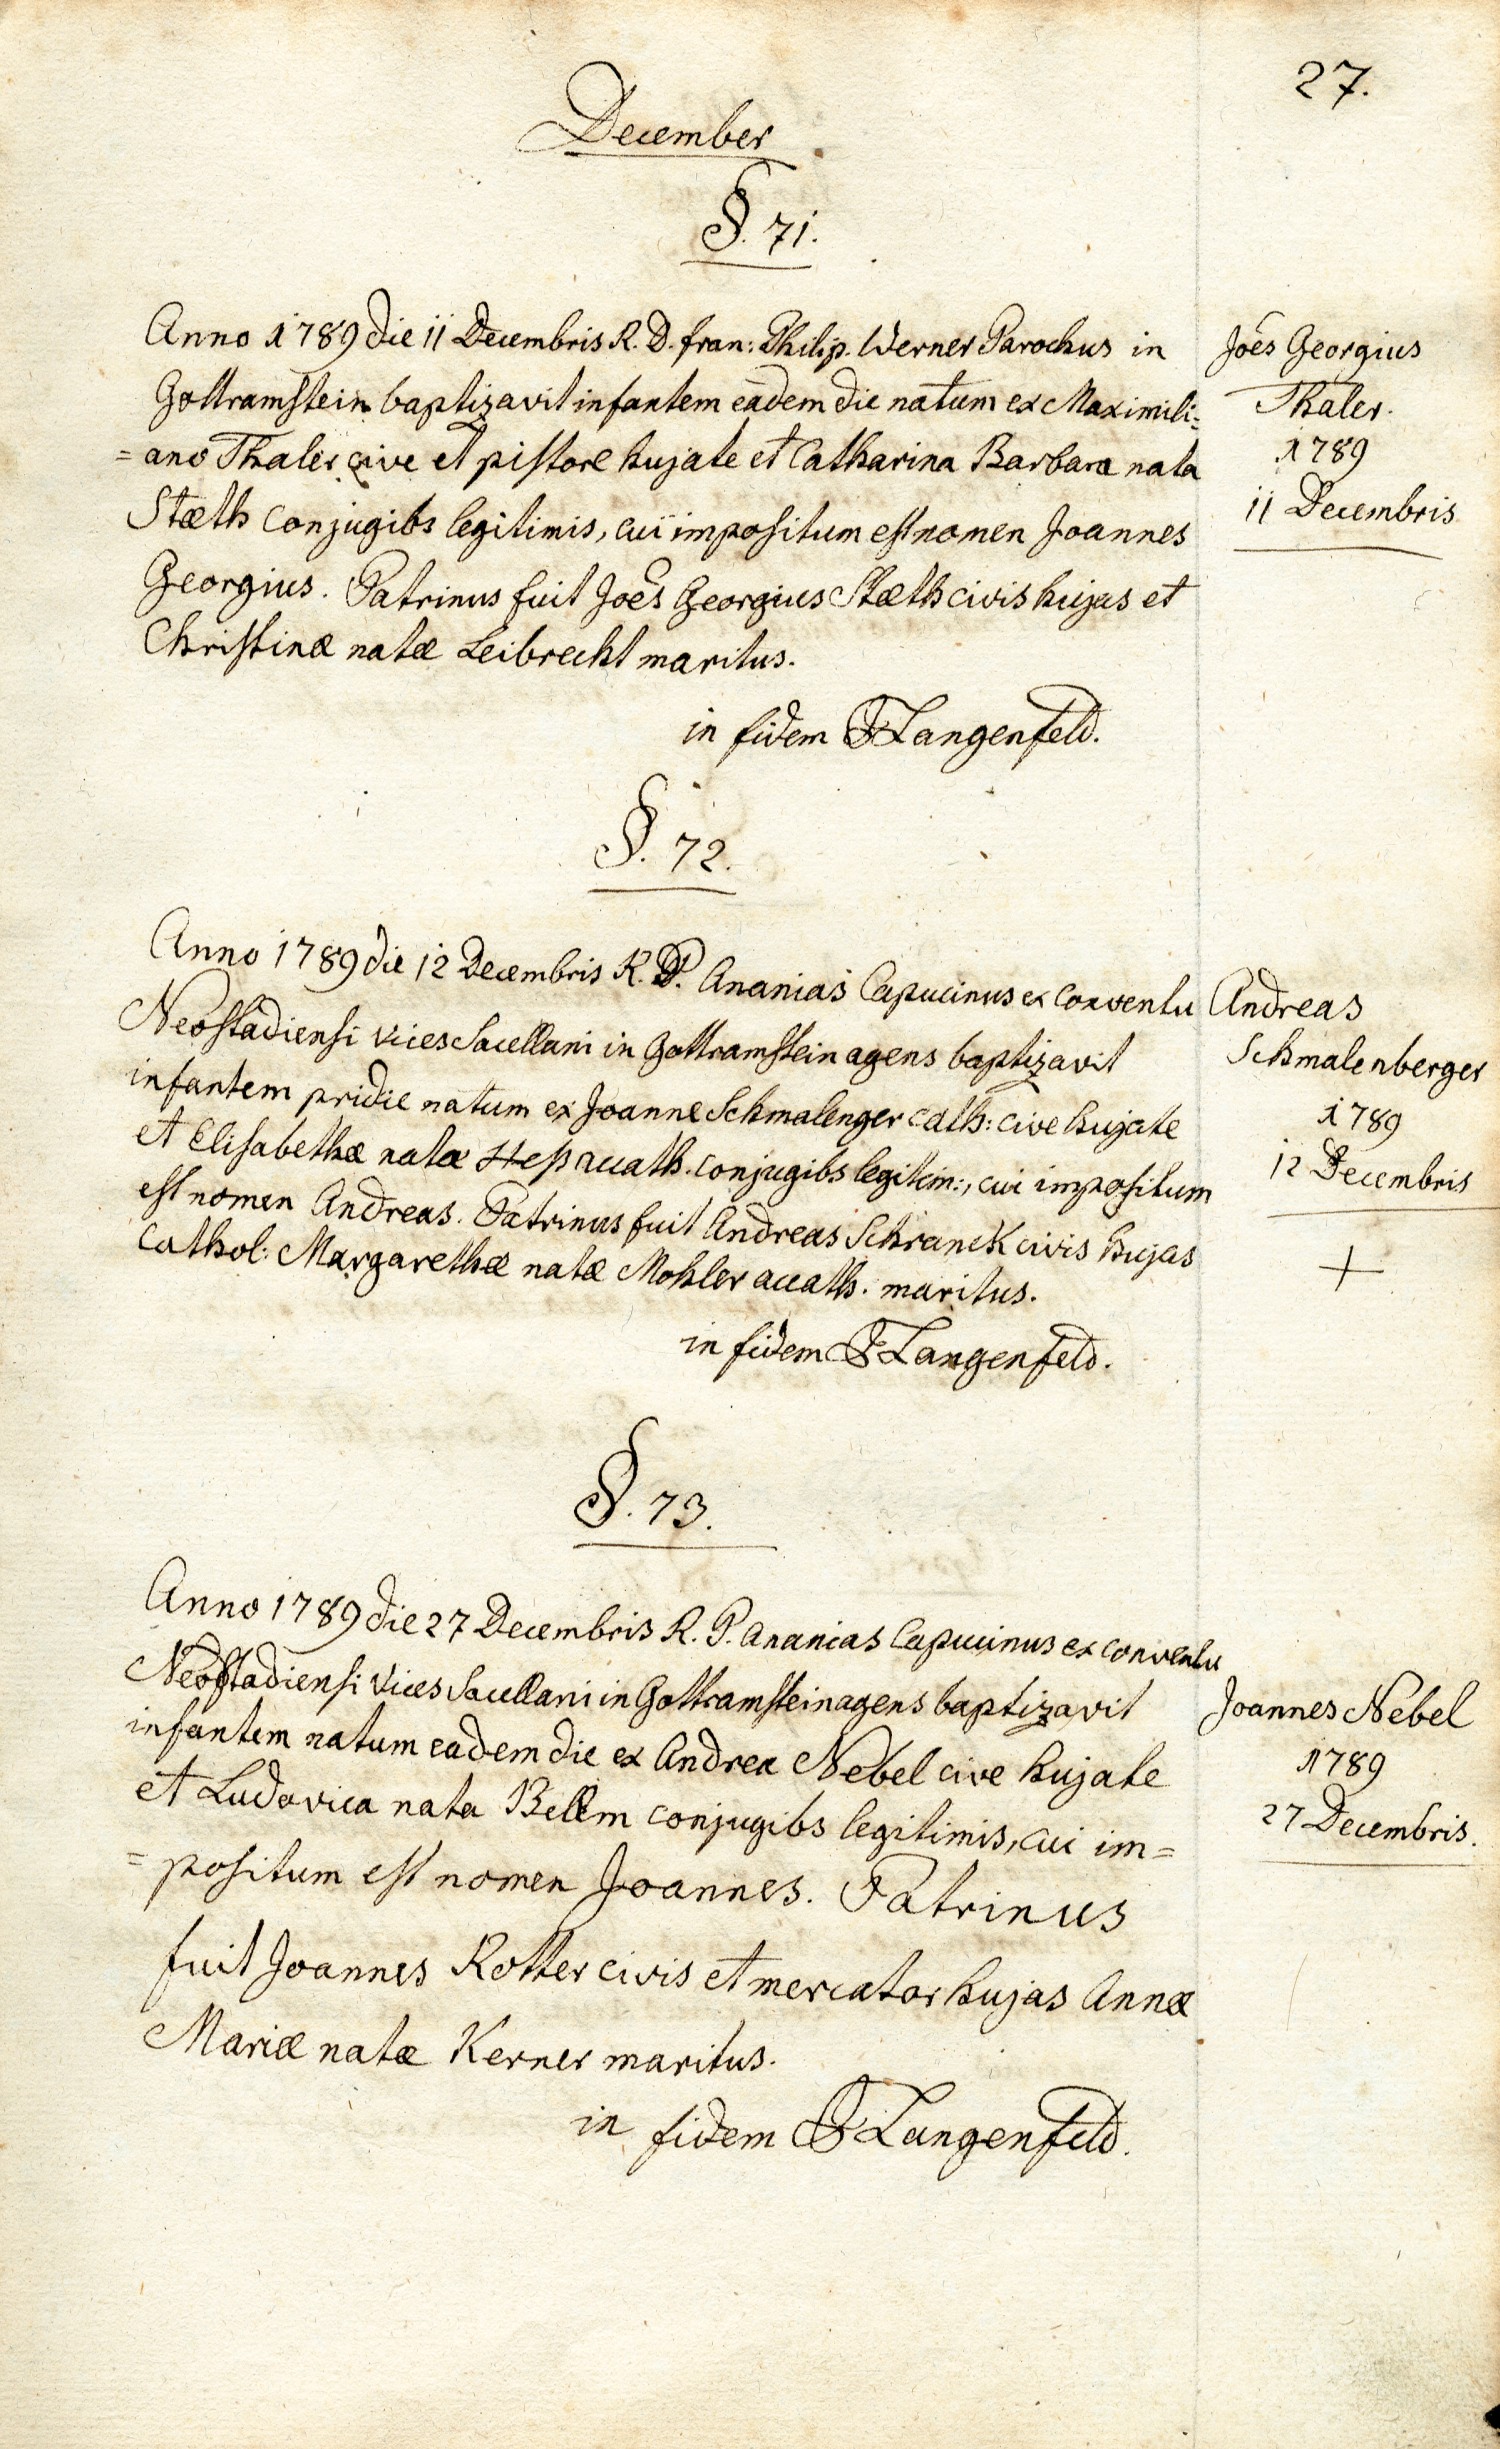 27.
December
§. 71.
Anno 1789 die 11 Decembris R. D. fran: Philip. Werner Parochus in
Gottramstein baptizavit infantem eadem die natum ex Maximili=
=ano Thaler cive et pistore hujate et Catharina Barbara nata
Stæth conjugibs legitimis, cui impositum est nomen Joannes
Georgius. Patrinus fuit Joes Georgius Stæth civis hujas et
Christinæ natæ Leibrecht maritus.
in fidem Langenfeld.
Joes Georgius
Thaler.
1789
11 Decembris
§. 72.
Anno 1789 die 12 Decembris R. P. Ananias Capucinus ex conventu
Neostadiensi vices Sacellani in Gottramstein agens baptizavit
infantem pridie natum ex Joanne Schmalenger cath: cive hujate
et Elisabethæ nata acath. conjugibs legitim:, cui impositum
est nomen Andreas. Patrinus fuit Andreas Schranck civis hujas
Cathol: Margarethæ natæ Mohler acath. maritus.
in fidem Langenfeld.
Andreas
Schmalenberger
1789
12 Decembris
+
§. 73.
Anno 1789 die 27 Decembris R. P. Ananias Capucinus ex conventu
Neostadiensi vices Sacellani in Gottramstein agens baptizavit
infantem natum eadem die ex Andrea Nebel cive hujate
et Ludovica nata Bellm conjugibs legitimis, cui im=
=positum est nomen Joannes. Patrinus
fuit Joannes Rotter civis et mercator hujas Annæ
Mariæ natæ Kerner maritus.
in fidem Langenfeld.
Joannes Nebel
1789
27 Decembris.